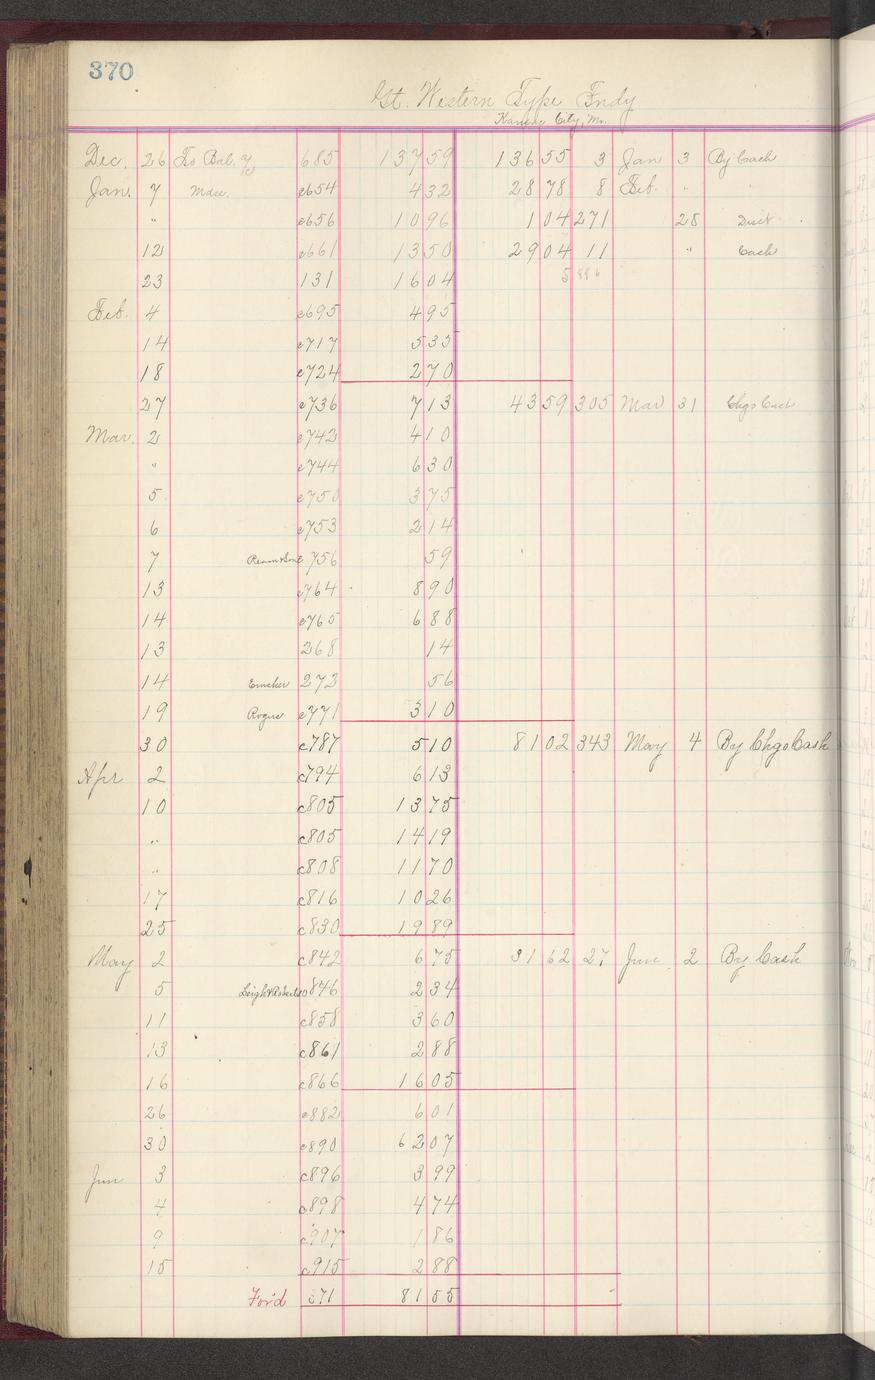 370
Gt. Western Type Fndy
Kansas City, Mo.
Dec. 26 To Bal. a/c 685 137 59 136 55 3 Jan 3 By Cash
Jan. 7 Mdse. c654 4 32 28 78 8 Feb. " "
" c656 10 96 1 04 271 28 Disct
12 c661 13 50 29 04 11 " Cash
23 131 16 04
Feb. 4 c695 4 95
14 c717 5 35
18 c724 2 70
27 c736 7 13 43 59 305 Mar 31 Chgo Cash
Mar. 2 c742 4 10
" c744 6 30
5 c750 3 75
6 c753 2 14
7 756 59
13 c764 8 90
14 c765 6 88
13 268 14
14 273 56
19 Rogue c771 3 10
30 c787 5 10 81 02 343 May 4 By Chgo Cash
Apr 2 c794 6 13
10 c805 13 75
" c805 14 19
" c808 11 70
17 c816 10 26
25 c830 19 89
May 2 c842 6 75 31 62 27 June 2 By Cash
5 Leigh & Roberts c846 2 34
11 c858 3 60
13 c861 2 88
16 c866 16 05
26 c882 6 01
30 c890 62 07
Jun 3 c896 3 99
4 c898 4 74
9 c907 1 86
15 c915 2 88
For'd 371 81 55